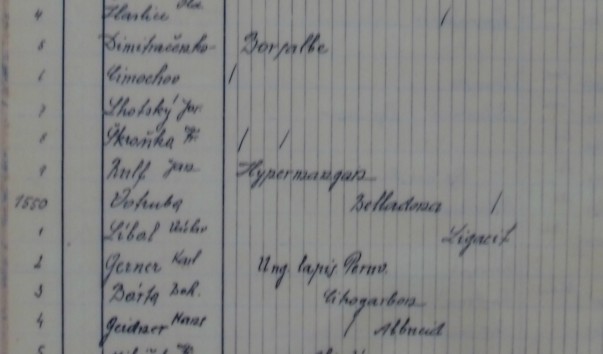 4 Havlice
5 Dimitračenko Borsalbe
6 Timochov /
7 Lhotský Jar.
8 Škroňka Fr. / /
9 Rulf Jan Hypermangan
1550 Votruba Belladona /
1 Líbal Ligacit
2 Gerner Karl Ung. lapis Peruv.
3 Bárta Boh.
4 Geidner Hans / Albneid
5